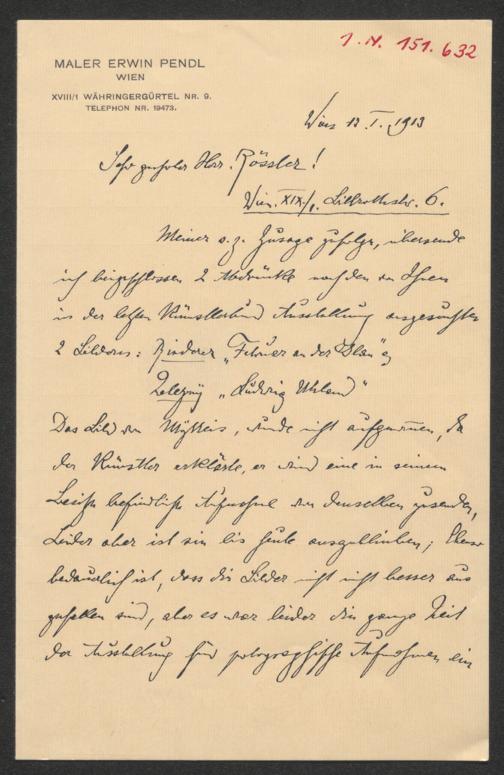 I. N. 151.632
MALER ERWIN PENDL
WIEN
XVIII/1 WÄHRINGERGÜRTEL NR. 9.
TELEPHON NR. 19473.
Wien 12.I.1913
Sehr geehrter Herr Rössler!
Wien. XIX/1. Billrothstr. 6.
Meiner s. z. Zusage zufolge, übersende
ich beigeschlossen 2 Abdrücke nach den von Ihnen
in der letzten Künstlerbund Ausstellung ausgesuchten
2 Bildern: "Februar an der
Zelezny "Ludwig Uhland"
Das Bild von wurde nicht aufgenommen, da
der Künstler erklärte, er wird eine in seinem
Besitze befindliche Aufnahme von demselben zusenden,
Leider aber ist sie bis heute ausgeblieben; Ebenso
bedauerlich ist, dass die Bilder nicht besser aus
gefallen sind, aber es war leider die ganze Zeit
der Ausstellung für photographische Aufnahmen ein